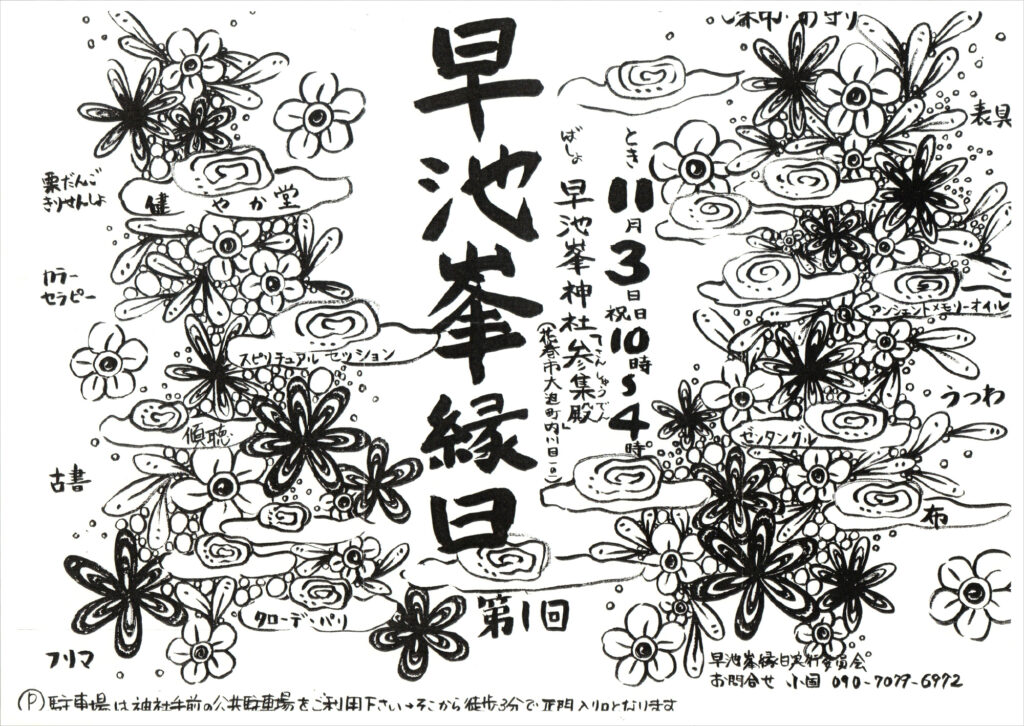 早池峯縁日
第1回
とき 11月3日祝日10時〜4時
ばしょ 早池峯神社参集殿
「さんしゅうでん」
表具
アンシェントメモリーオイル
うつわ
ゼンタングル
布
栗だんご
きりせんしょ
健やか堂
カラー
セラピー
スピリチュアルセッション
傾聴
古書
タローデンパリ
フリマ
早池峯縁日実行委員会
お問合せ 小国 090-7079-6972
Ⓟ駐車場は神社手前の公共駐車場をご利用下さい→そこから徒歩3分で正門入り口となります